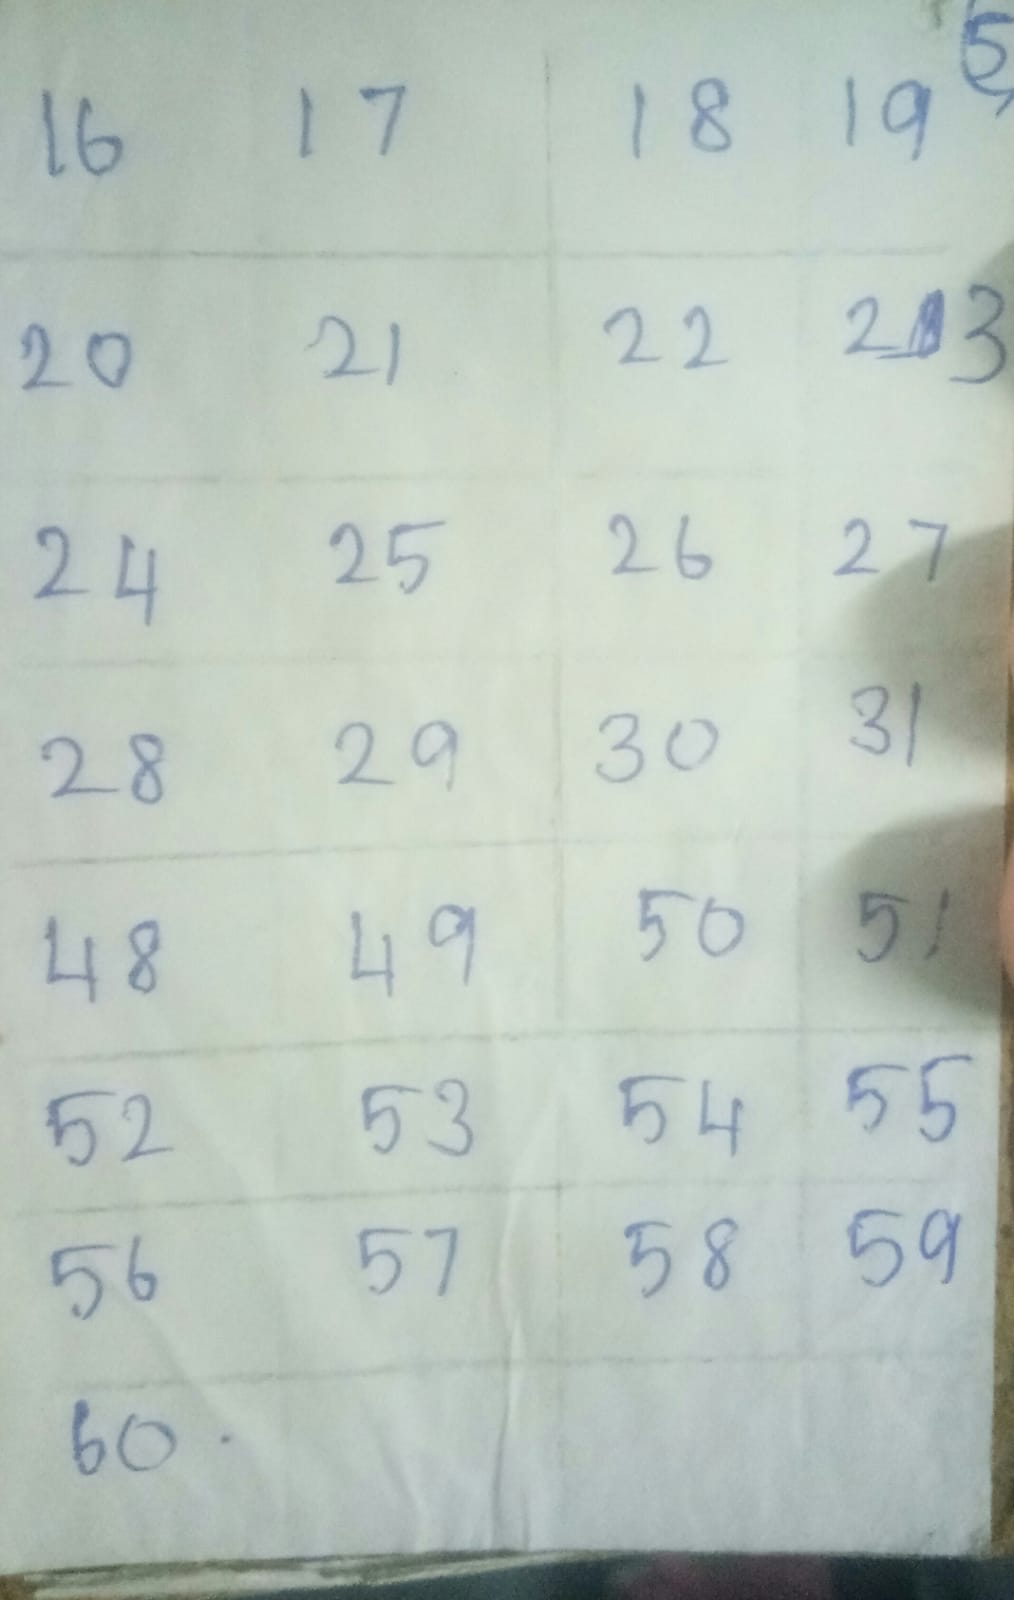 5
16 17 18 19
20 21 22 23
24 25 26 27
28 29 30 31
48 49 50 51
52 53 54 55
56 57 58 59
60.